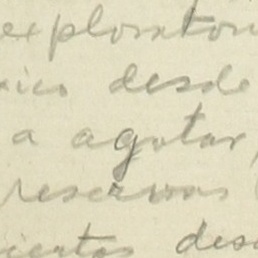 explorator
xico desde
a agotar,
reservas
ientos des